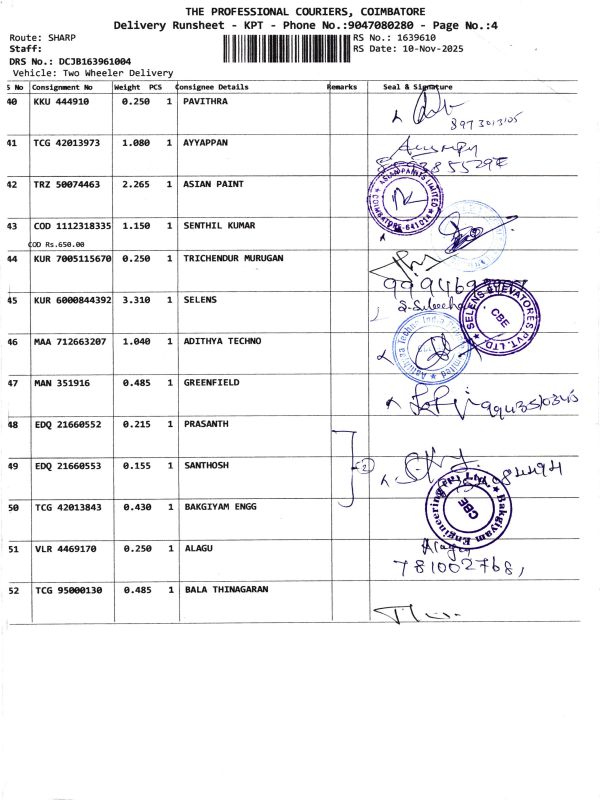 THE PROFESSIONAL COURIERS, COIMBATORE
Delivery Runsheet - KPT - Phone No.:9047080280 - Page No.:4
Route: SHARP
RS No.: 1639610
Staff:
RS Date: 10-Nov-2025
DRS No.: DCJB163961004
Vehicle: Two Wheeler Delivery
S No Consignment No Weight PCS Consignee Details Remarks Seal & Signature
40 KKU 444910 0.250 1 PAVITHRA
8973013105
41 TCG 42013973 1.080 1 AYYAPPAN
42 TRZ 50074463 2.265 1 ASIAN PAINT
ASIAN PAINTS LIMITED COIMBATORE-641024
43 COD 1112318335 1.150 1 SENTHIL KUMAR
COD Rs.650.00
44 KUR 7005115670 0.250 1 TRICHENDUR MURUGAN
45 KUR 6000844392 3.310 1 SELENS
SELENS ELEVATORES PVT.LTD. CBE
46 MAA 712663207 1.040 1 ADITHYA TECHNO
47 MAN 351916 0.485 1 GREENFIELD
9943510345
48 EDQ 21660552 0.215 1 PRASANTH
49 EDQ 21660553 0.155 1 SANTHOSH
2
50 TCG 42013843 0.430 1 BAKGIYAM ENGG
Bakgiyam Engineering Pvt Ltd CBE
51 VLR 4469170 0.250 1 ALAGU
Alagu
781002768,
52 TCG 95000130 0.485 1 BALA THINAGARAN